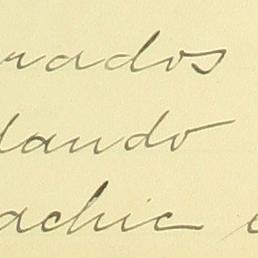 rados
dando
achic